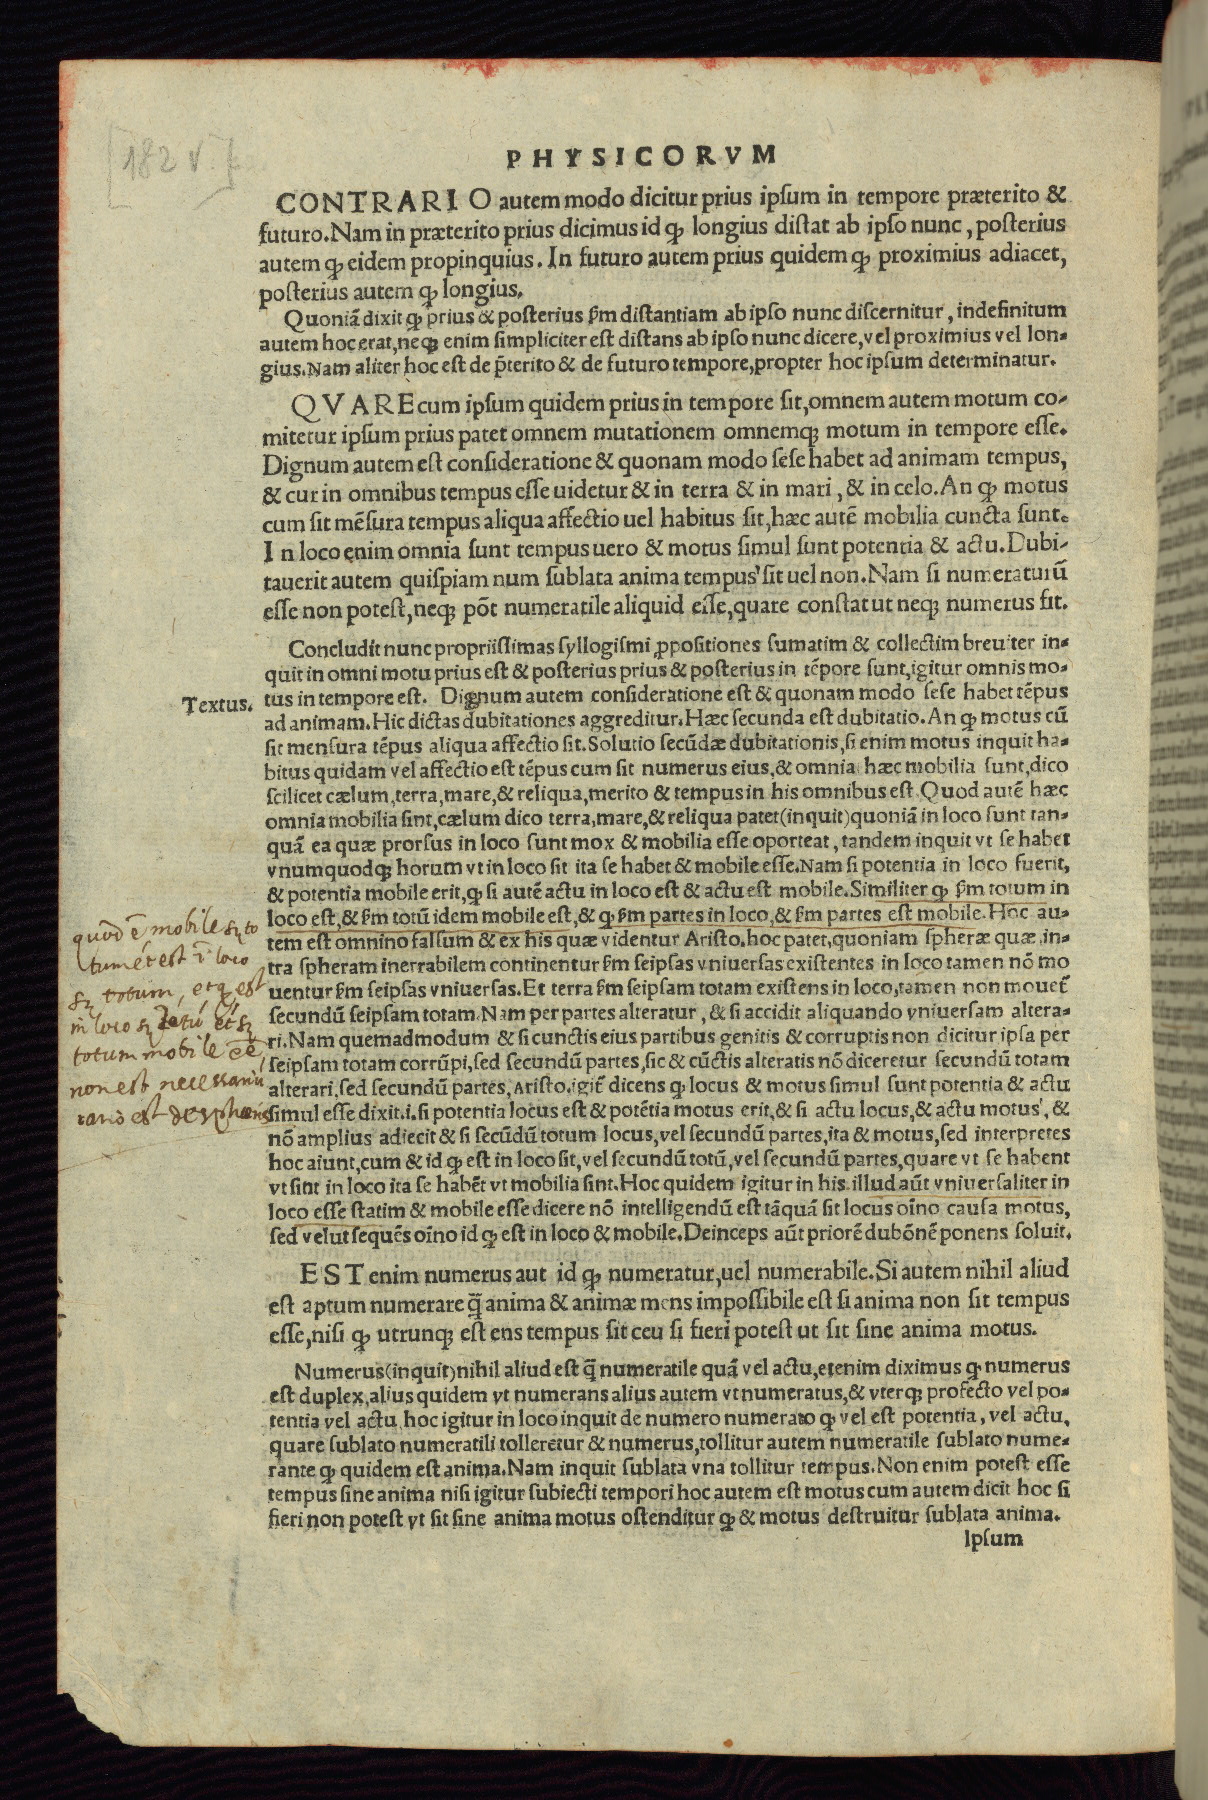 [182 v.]
PHYSICORVM
CONTRARIO autem modo dicitur prius ipsum in tempore præterito &
futuro. Nam in præterito prius dicimus id ꝙ longius distat ab ipso nunc, posterius
autem ꝙ eidem propinquius. In futuro autem prius quidem ꝙ proximius adiacet,
posterius autem ꝙ longius.
Quoniā dixit ꝙ prius & posterius ẜm distantiam ab ipso nunc discernitur, indefinitum
autem hoc erat, neqꝫ enim simpliciter est distans ab ipso nunc dicere, vel proximius vel lon-
gius. Nam aliter hoc est de p̄terito & de futuro tempore, propter hoc ipsum determinatur.
QVARE cum ipsum quidem prius in tempore sit, omnem autem motum co-
mitetur ipsum prius patet omnem mutationem omnemqꝫ motum in tempore esse.
Dignum autem est consideratione & quonam modo sese habet ad animam tempus,
& cur in omnibus tempus esse uidetur & in terra & in mari, & in celo. An ꝙ motus
cum sit mēsura tempus aliqua affectio uel habitus sit, hæc autē mobilia cuncta sunt.
In loco enim omnia sunt tempus uero & motus simul sunt potentia & actu. Dubi-
tauerit autem quispiam num sublata anima tempus' sit uel non. Nam si numeraturū
esse non potest, neqꝫ pōt numeratile aliquid esse, quare constat ut neqꝫ numerus sit.
Concludit nunc propriissimas syllogismi ꝓpositiones sumatim & collectim breuiter in-
quit in omni motu prius est & posterius prius & posterius in tēpore sunt, igitur omnis mo-
Textus. tus in tempore est. Dignum autem consideratione est & quonam modo sese habet tēpus
ad animam. Hic dictas dubitationes aggreditur. Hæc secunda est dubitatio. An ꝙ motus cū
sit mensura tēpus aliqua affectio sit. Solutio secūdæ dubitationis, si enim motus inquit ha-
bitus quidam vel affectio est tēpus cum sit numerus eius, & omnia hæc mobilia sunt, dico
scilicet cælum, terra, mare, & reliqua, merito & tempus in his omnibus est. Quod autē hæc
omnia mobilia sint, cælum dico terra, mare, & reliqua patet (inquit) quoniā in loco sunt tan-
quā ea quæ prorsus in loco sunt mox & mobilia esse oporteat, tandem inquit vt se habet
vnumquodqꝫ horum vt in loco sit ita se habet & mobile esse. Nam si potentia in loco fuerit,
& potentia mobile erit, ꝙ si autē actu in loco est & actu est mobile. Similiter ꝙ ẜm totum in
loco est, & ẜm totū idem mobile est, & ꝙ ẜm partes in loco, & ẜm partes est mobile. Hoc au-
tem est omnino falsum & ex his quæ videntur Aristo. hoc patet, quoniam spheræ quæ in-
tra spheram inerrabilem continentur ẜm seipsas vniuersas existentes in loco tamen nō mo
uentur ẜm seipsas vniuersas. Et terra ẜm seipsam totam existens in loco, tamen non mouet̄
secundū seipsam totam. Nam per partes alteratur, & si accidit aliquando vniuersam altera-
ri. Nam quemadmodum & si cunctis eius partibus genitis & corruptis non dicitur ipsa per
seipsam totam corrūpi, sed secundū partes, sic & cūctis alteratis nō diceretur secundū totam
alterari, sed secundū partes, Aristo. igit̄ dicens ꝙ locus & motus simul sunt potentia & actu
simul esse dixit. i. si potentia locus est & potētia motus erit, & si actu locus, & actu motus', &
nō amplius adiecit & si secūdū totum locus, vel secundū partes, ita & motus, sed interpretes
hoc aiunt, cum & id ꝙ est in loco sit, vel secundū totū, vel secundū partes, quare vt se habent
vt sint in loco ita se habēt vt mobilia sint. Hoc quidem igitur in his. illud aūt vniuersaliter in
loco esse statim & mobile esse dicere nō intelligendū est tāquā sit locus oīno causa motus,
sed velut sequēs oīno id ꝙ est in loco & mobile. Deinceps aūt priorē dubōnē ponens soluit.
quod ē mobile sꝫ to
tum et est ī loco
sꝫ totum, et ꝙ est
in loco sꝫ totū et sꝫ
totum mobile eē
non est necessariū
ratio est de spheris
EST enim numerus aut id ꝙ numeratur, uel numerabile. Si autem nihil aliud
est aptum numerare q̄ anima & animæ mens impossibile est si anima non sit tempus
esse, nisi ꝙ utrunqꝫ est ens tempus sit ceu si fieri potest ut sit sine anima motus.
Numerus (inquit) nihil aliud est q̄ numeratile quā vel actu, etenim diximus ꝙ numerus
est duplex, alius quidem vt numerans alius autem vt numeratus, & vterqꝫ profecto vel po-
tentia vel actu, hoc igitur in loco inquit de numero numerato ꝙ vel est potentia, vel actu,
quare sublato numeratili tolleretur & numerus, tollitur autem numeratile sublato nume-
rante ꝙ quidem est anima. Nam inquit sublata vna tollitur tempus. Non enim potest esse
tempus sine anima nisi igitur subiecti tempori hoc autem est motus cum autem dicit hoc si
fieri non potest vt sit sine anima motus ostenditur ꝙ & motus destruitur sublata anima.
Ipsum